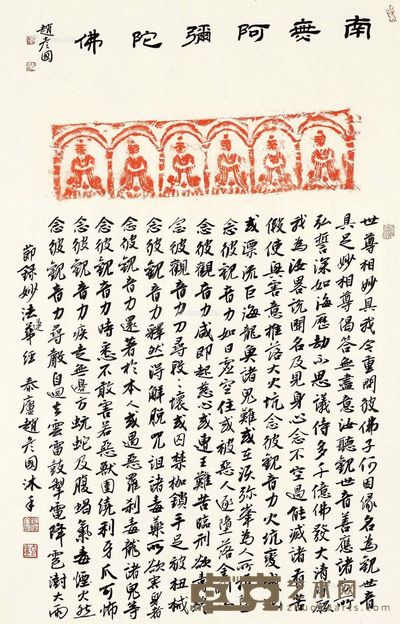 南無阿彌陀佛
趙彥國
世尊相妙具我今重問彼佛子何因緣名為觀世音
具足妙相尊偈答無盡意汝聽觀世音善應諸方所
弘誓深如海歷劫不思議侍多千億佛發大清淨願
我為汝畧說聞名及見身心念不空過能滅諸有苦
假使興害意推落大火坑念彼觀音力火坑變成
或漂流巨海龍魚諸鬼難或在須彌峯為人所推
念彼觀音力如日虛空住或被惡人逐墮落金
念彼觀音力咸即起慈心或遭王難苦臨刑欲壽
念彼觀音力刀尋段〻壞或囚禁枷鎖手足被杻械
念彼觀音力釋然得解脫咒詛諸毒藥所欲害身者
念彼觀音力還著於本人或遇惡羅剎毒龍諸鬼等
念彼觀音力時悉不敢害若惡獸圍繞利牙爪可怖
念彼觀音力疾走無邊方蚖蛇及腹蝎氣毒煙火然
念彼觀音力尋聲自迴去雲雷鼓掣電降雹澍大雨
節錄妙法蓮華經 泰廬趙彥國沐手
卓克艺术网